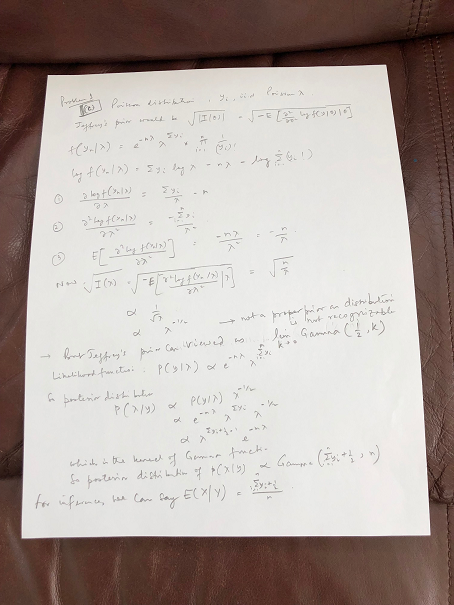 Problem 1
(a) Poisson distribution, yi iid Poisson λ
Jeffrey's prior would be √|I(θ)| = √-E[∂²/∂θ² log f(x|θ)|θ]
f(yn|λ) = e^-nλ λ^Σyi * n∏i=1 1/(yi)!
log f(yn|λ) = Σyi log λ - nλ - log Σ(yi!)
① ∂ log f(yn|λ)/∂λ = Σyi/λ - n
② ∂² log f(yn|λ)/∂λ² = -Σyi/λ²
③ E[∂² log f(yn|λ)/∂λ²] = -nλ/λ² = -n/λ
Now √I(λ) = √-E[∂² log f(yn|λ)/∂λ²|λ] = √n/λ
∝ 1/√λ
∝ λ^-1/2 → not a proper prior or distribution
is not recognizable
→ But Jeffrey's prior can viewed as lim k→0 Gamma(1/2, k)
Likelihood function. P(y|λ) ∝ e^-nλ λ^Σyi
So posterior distribution
P(λ|y) ∝ P(y|λ) λ^-1/2
∝ e^-nλ λ^Σyi λ^-1/2
∝ λ^Σyi+1/2-1 e^-nλ
which is the kernel of Gamma function
So posterior distribution of P(λ|y) ∝ Gamma(Σyi+1/2, n)
for inference, we can say E(λ|y) = Σyi+1/2 / n